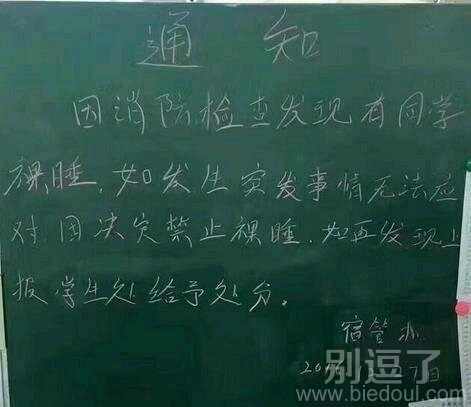 通 知
因消防检查发现有同学
裸睡,如发生突发事情无法应
对因决定禁止裸睡.如再发现上
报学生处给予处分。
宿管办
别逗了
www.biedoul.com